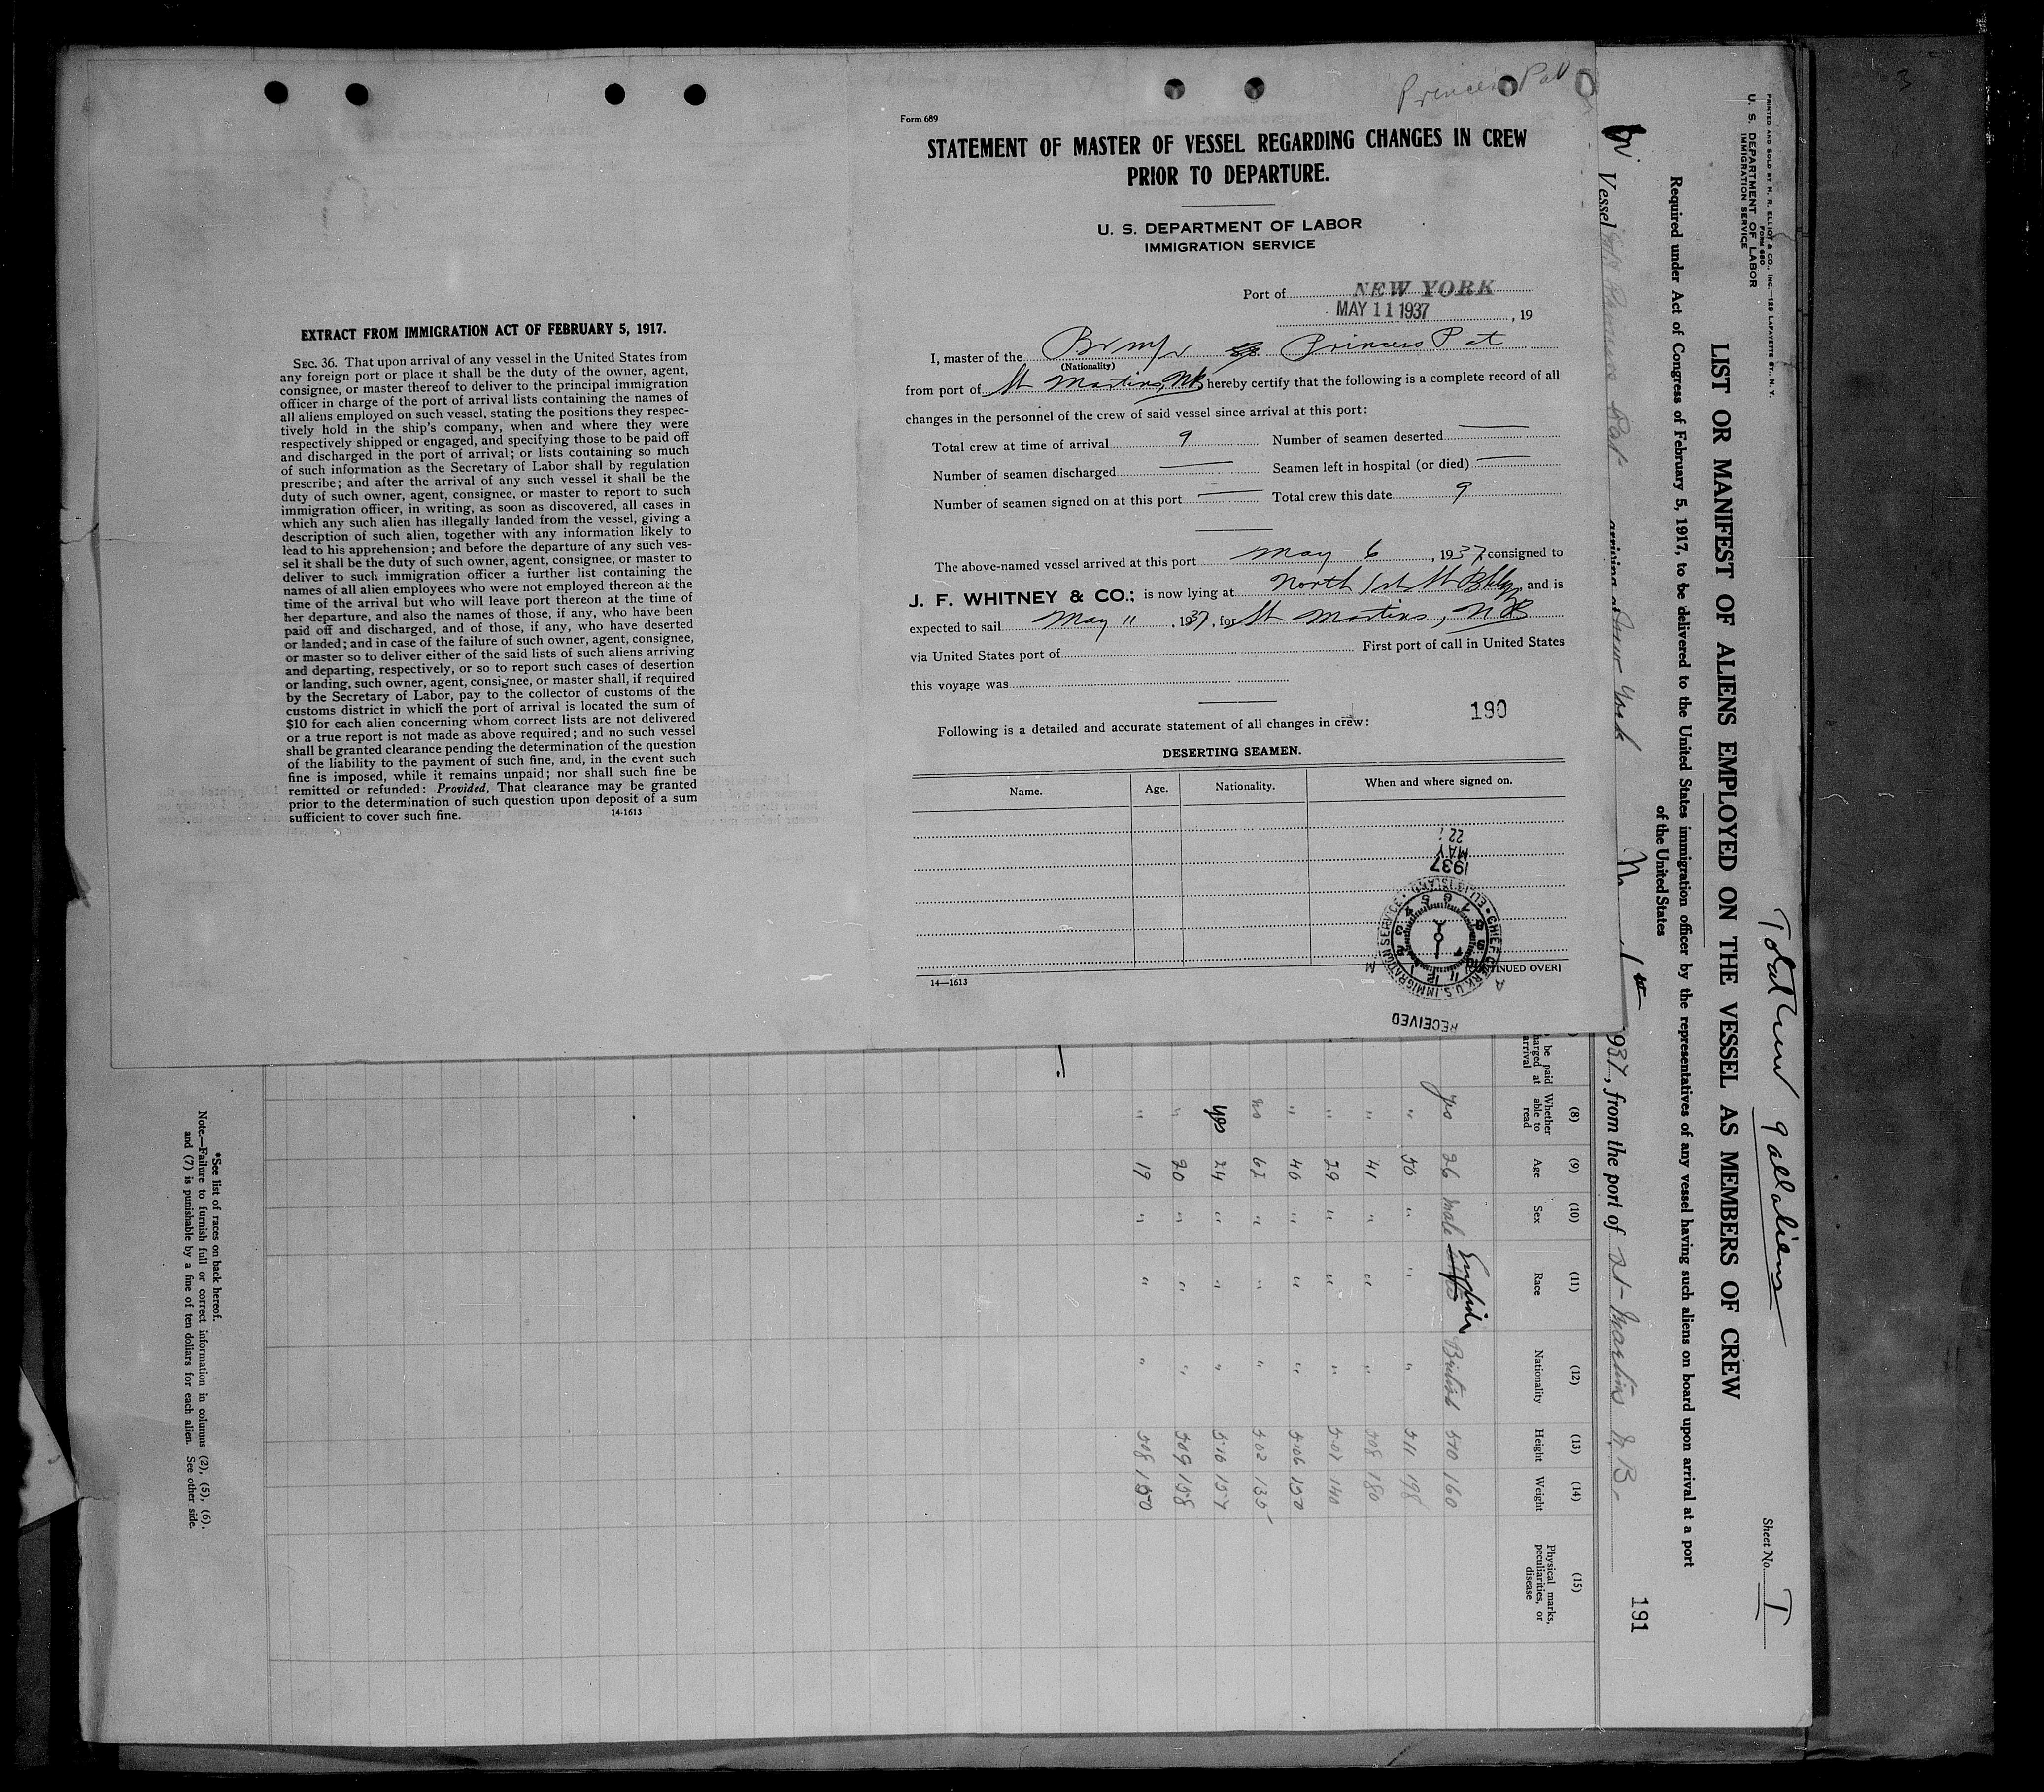 Princess Pat
Form 689
STATEMENT OF MASTER OF VESSEL REGARDING CHANGES IN CREW
PRIOR TO DEPARTURE.
U. S. DEPARTMENT OF LABOR
IMMIGRATION SERVICE
Port of NEW YORK
MAY 11 1937, 19
I, master of the Br Princess Pat
(Nationality)
from port of St Martins, NB hereby certify that the following is a complete record of all
changes in the personnel of the crew of said vessel since arrival at this port:
Total crew at time of arrival 9 Number of seamen deserted —
Number of seamen discharged — Seamen left in hospital (or died) —
Number of seamen signed on at this port — Total crew this date 9
The above-named vessel arrived at this port May 6, 1937, consigned to
J. F. WHITNEY & CO.; is now lying at North 1st St Bklyn, and is
expected to sail May 11, 1937, for St Martins, NB
via United States port of First port of call in United States
this voyage was
190
Following is a detailed and accurate statement of all changes in crew:
DESERTING SEAMEN.
Name. Age. Nationality. When and where signed on.
1937
MAY
22
CHIEF CLERK, U.S. IMMIGRATION SERVICE · ELLIS ISLAND
RECEIVED
14—1613
EXTRACT FROM IMMIGRATION ACT OF FEBRUARY 5, 1917.
SEC. 36. That upon arrival of any vessel in the United States from
any foreign port or place it shall be the duty of the owner, agent,
consignee, or master thereof to deliver to the principal immigration
officer in charge of the port of arrival lists containing the names of
all aliens employed on such vessel, stating the positions they respec-
tively hold in the ship's company, when and where they were
respectively shipped or engaged, and specifying those to be paid off
and discharged in the port of arrival; or lists containing so much
of such information as the Secretary of Labor shall by regulation
prescribe; and after the arrival of any such vessel it shall be the
duty of such owner, agent, consignee, or master to report to such
immigration officer, in writing, as soon as discovered, all cases in
which any such alien has illegally landed from the vessel, giving a
description of such alien, together with any information likely to
lead to his apprehension; and before the departure of any such ves-
sel it shall be the duty of such owner, agent, consignee, or master to
deliver to such immigration officer a further list containing the
names of all alien employees who were not employed thereon at the
time of the arrival but who will leave port thereon at the time of
her departure, and also the names of those, if any, who have been
paid off and discharged, and of those, if any, who have deserted
or landed; and in case of the failure of such owner, agent, consignee,
or master so to deliver either of the said lists of such aliens arriving
and departing, respectively, or so to report such cases of desertion
or landing, such owner, agent, consignee, or master shall, if required
by the Secretary of Labor, pay to the collector of customs of the
customs district in which the port of arrival is located the sum of
$10 for each alien concerning whom correct lists are not delivered
or a true report is not made as above required; and no such vessel
shall be granted clearance pending the determination of the question
of the liability to the payment of such fine, and, in the event such
fine is imposed, while it remains unpaid; nor shall such fine be
remitted or refunded: Provided, That clearance may be granted
prior to the determination of such question upon deposit of a sum
sufficient to cover such fine. 14-1613
PRINTED AND SOLD BY H. R. ELLIOT & CO., INC.—129 LAFAYETTE ST., N. Y.
FORM 680
U. S. DEPARTMENT OF LABOR
IMMIGRATION SERVICE
Total Crew 9 all aliens
Sheet No. 1
LIST OR MANIFEST OF ALIENS EMPLOYED ON THE VESSEL AS MEMBERS OF CREW
Required under Act of Congress of February 5, 1917, to be delivered to the United States immigration officer by the representatives of any vessel having such aliens on board upon arrival at a port
of the United States
Br Vessel Princess Pat arriving at New York 1st 1937, from the port of St Martins N. B.
191
be paid
harged at
arrival
(8) Whether able to read
(9) Age
(10) Sex
(11) Race
(12) Nationality
(13) Height
(14) Weight
(15) Physical marks, peculiarities, or disease
yes 26 male English British 510 160
" 50 " " " 511 198
" 41 " " " 508 180
" 29 " " " 507 140
" 46 " " " 506 150
no " " " 502 135
yes 24 " " " 510 157
" 20 " " " 509 158
" 19 " " " 508 150
*See list of races on back hereof.
Note.—Failure to furnish full or correct information in columns (2), (5), (6),
and (7) is punishable by a fine of ten dollars for each alien. See other side.